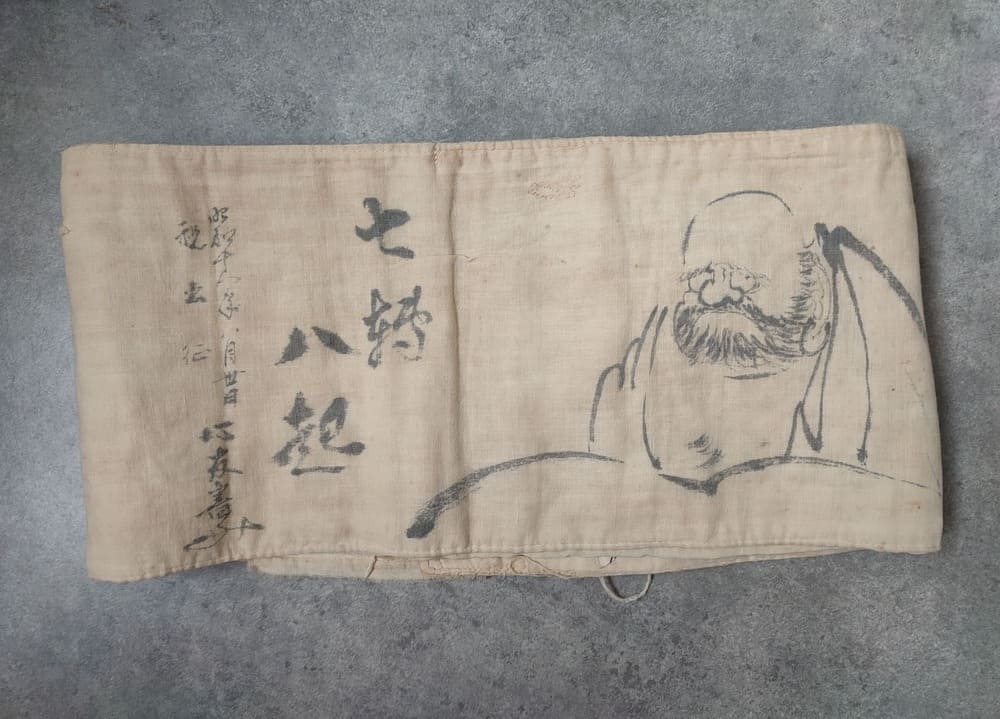 七轉
八起
昭和十年八月廿日
祝出征